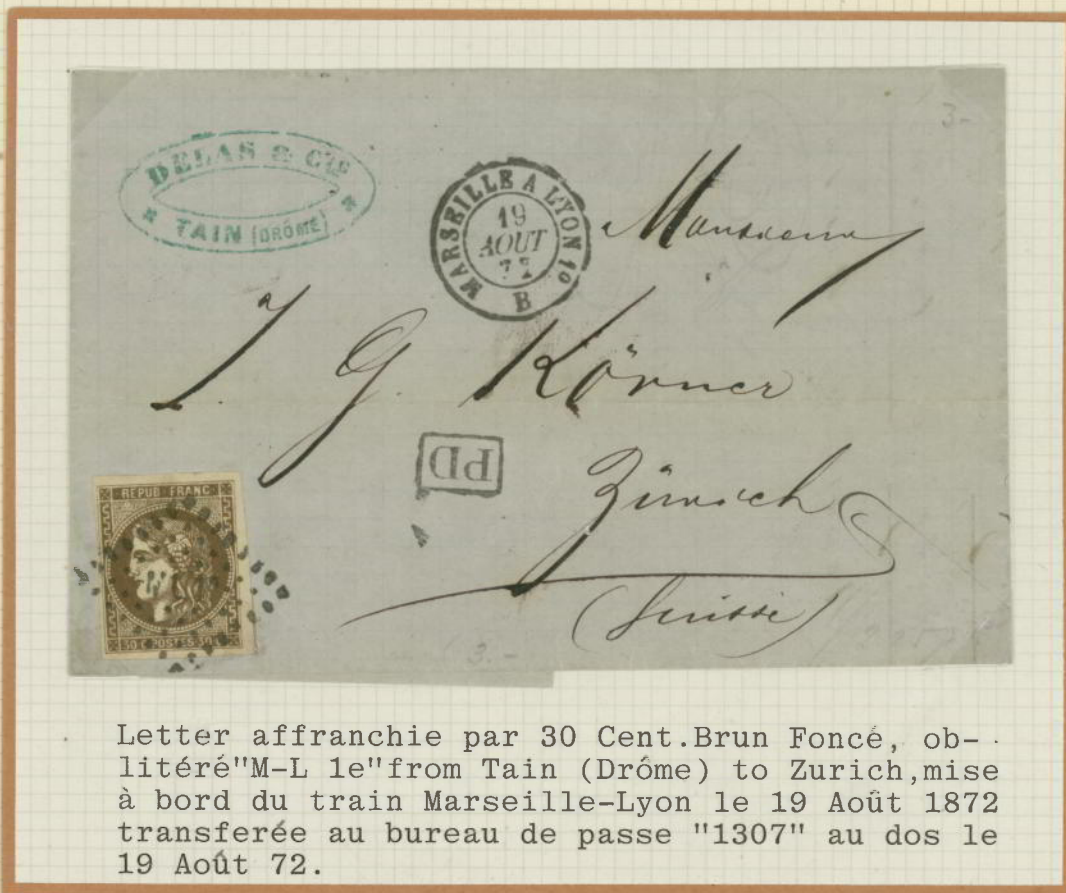 DELAS & Cie
TAIN (DRÔME)
MARSEILLE A LYON 1o
19
AOUT
B
Monsieur
J. G. Körner
PD
Zürich
(Suisse)
REPUB FRANC
30 C POSTES 30 C
3.-
3-
Letter affranchie par 30 Cent.Brun Foncé, ob-
litéré"M-L 1e"from Tain (Drôme) to Zurich,mise
à bord du train Marseille-Lyon le 19 Août 1872
transferée au bureau de passe "1307" au dos le
19 Août 72.